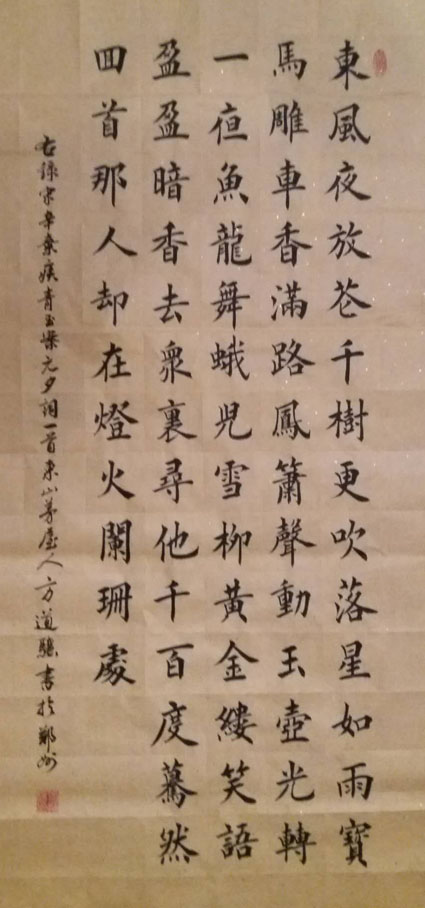 東風夜放花千樹更吹落星如雨寶
馬雕車香滿路鳳簫聲動玉壺光轉
一夜魚龍舞蛾兒雪柳黃金縷笑語
盈盈暗香去衆裏尋他千百度驀然
回首那人却在燈火闌珊處
右録宋辛棄疾青玉案元夕詞一首東山茅屋人方道書於鄭州